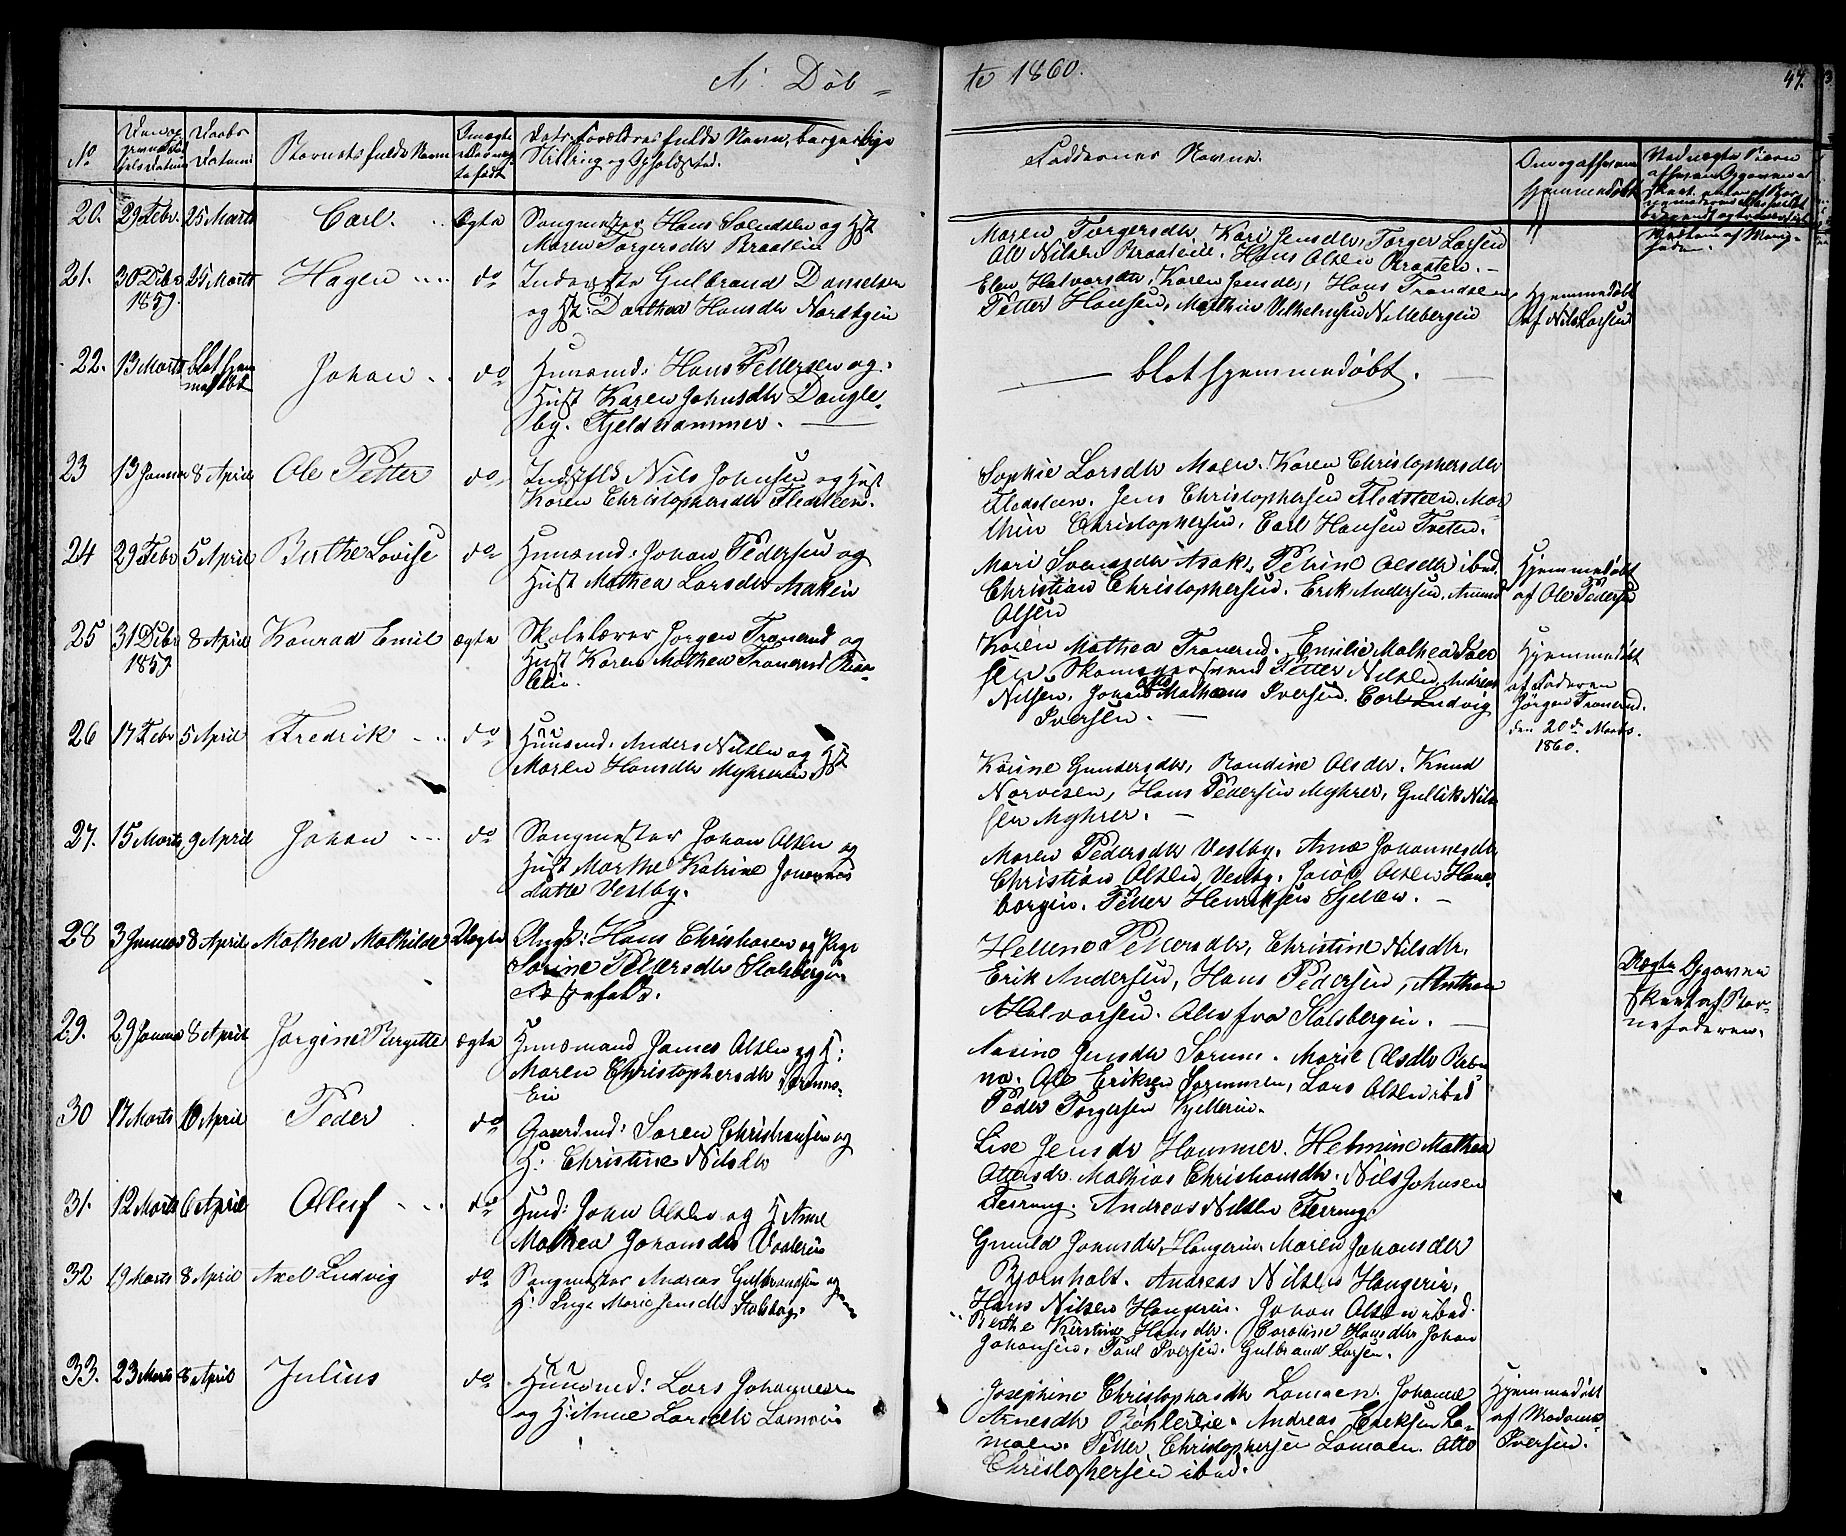 N. Døb-
te 1860.
47.
No
Daabs Datum
Barnets fulde Navn
Dets Forældres fulde Navn, borgerlige
Stilling og Opholdssted.
Faddernes Navne.
Om og af hvem
hjemmedøbt
20. 29 Febr. 25 Marts Carl. Ægte Sangmester Hans Svendsen og Hst
Maren Torgersdtr Braaten
Maren Torgersdtr, Kari Jensdtr, Torger Larsen
Ole Nilsen Braaten. Hans Olsen Braaten.
21. 30 Debr 1859. 25 Marts Hagen do Inderste Gulbrand Danielsen
og Hst: Dorthea Hansdtr Nordbyein
Elen Halvorsdtr, Karen Jensdtr, Hans Trondsen
Petter Hansen, Mathin Vilhelmsen Nillebergein
Hjemmedøbt
af Nils Larsen
22. 13 Marts blot hjemmedøbt Johan do Huusmd: Hans Pettersen og
Hust Karen Johnsdtr Dangle-
by. Fjeldhammer.
blot hjemmedøbt.
23 13 Januar 8 April Ole Petter do Indstls Nils Johnsen og Hust
Karen Christophersdtr Flodsteen.
Sophie Larsdtr Moen. Karen Christophersdtr
Flodsteen. Jens Christophersen Flodsteen. Ma-
thin Christophersen. Carl Hansen Tveten.
24 29 Febr 5 April Berthe Lovise do Huusmd: Johan Pedersen og
Hust Mathea Larsdtr Asakein
Mari Svensdtr Asak, Petrine Olsdtr ibid.
Christian Christophersen. Erik Andersen. Amund
Olsen
Hjemmedøbt
af Ole Pedersen
25 31 Debr 1859 8 April Konrad Emil ægte Skolelærer Jørgen Tronerud og
Hust Karen Mathea Tronerud
Karen Mathea Tronerud. Emilie Mathea Iver
sen Petter Nilsen, Andreas
Nilsen. Johan Mathæus Iversen. Carl Ludvig
Iversen.
Hjemmedøbt
af Faderen
Jørgen Tronerud.
den 20de Marts.
1860.
26 17 Febr 5 April Fredrik do Huusmd. Anders Nilsen og Hst
Maren Hansdtr Myhrerein
Karine Gundersdtr, Randine Olsdtr. Knud
Narvesen, Hans Pedersen Myhrer, Gullik Nil-
sen Myhrer.
27. 15 Marts 9 April Johan do Sangmester Johan Olsen og
Hust Marthe Katrine Johannes
datter Vestby.
Maren Pedersdtr Vestby. Anne Johannesdtr
Christian Olsen Vestby. Jacob Olsen Hane-
borgein. Petter Henriksen Sjellev.
28 3 Januar 8 April Mathea Mathilde Uægte Ungk: Hans Christiansen og Pige
Sørine Pettersdtr Stalsbergein
Hellene Pettersdtr, Christine Nilsdtr.
Erik Andersen, Hans Pedersen, Anthon
Halvorsen. Alle fra Stalsbergein.
Uægte Opgaven
skeet af Bar-
nefaderen.
29. 29 Januar 8 April Jørgine Birgitte ægte Huusmand James Olsen og H:
Maren Christophersdtr Sørums-
Eie
Jensdtr Sørum. Marie Olsdtr
Ole Eriksen Lars Olsen ibid
Peder Torgersen Kjellerein.
30 17 Marts 6 April Peder do Gaardmd: Søren Christiansen og
H: Christine Nilsdtr
Lise Jensdtr Hammer. Helmine Mathea
Ottersdtr. Mathias Christiansdtr. Nils Johnsen
Terrung. Andreas Nilsen Terrung.
31. 12 Marts 6 April Olluf do Husd: John Olsen og H Anne
Mathea Johansdtr
Gunild Johnsdtr, Haugerein. Maren Johansdtr
Bjørnholt. Andreas Nilsen Haugerein,
Hans Nilsen Haugerein. Johan Olsen ibid.
32 19 Marts 8 April Axel Ludvig do Sangmester Andreas Gulbrandsen og
H: Inge Marie Jensdtr
Berthe Kirstine Hansdtr. Caroline Hansdtr Johan
Johansen. Paul Iversen. Gulbrand Larsen.
33. 23 Marts 8 April Julius do Huusmd: Lars Johannesen
og H: Anne Larsdtr
Josephine Christophersdtr Lamoen. Johanne
Arnesdtr Andreas Eriksen La-
moen. Petter Christophersen Lamoen. Otto
Christophersen ibid.
Hjemmedøbt
af
Iversen.